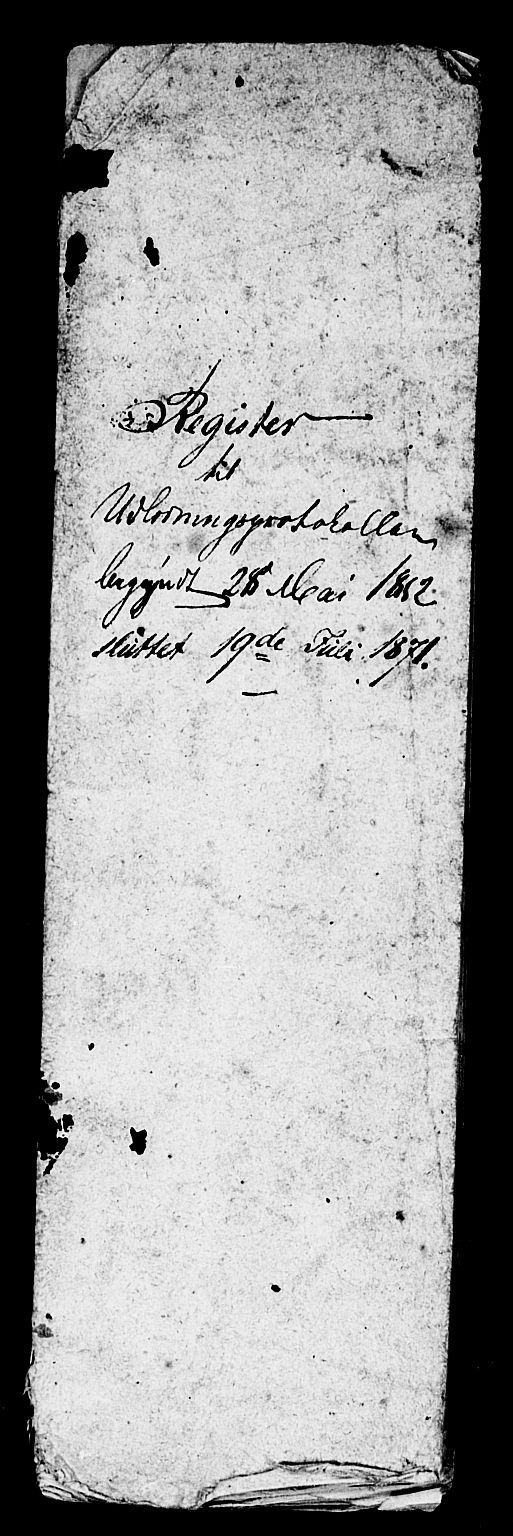 Register
til
Udlodningsprotokollen
begyndt 28 Mai 1852.
sluttet 19de Juli 1871.